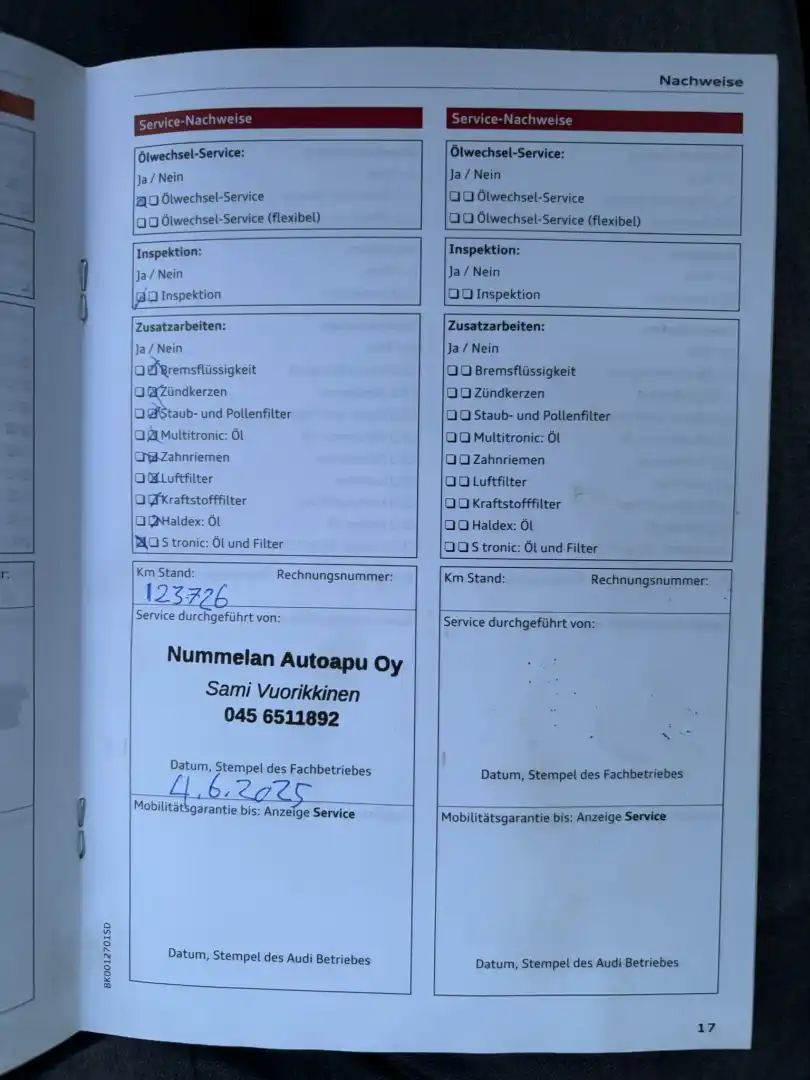 Nachweise
Service-Nachweise
Ölwechsel-Service:
Ja / Nein
Ölwechsel-Service
Ölwechsel-Service (flexibel)
Inspektion:
Ja / Nein
Inspektion
Zusatzarbeiten:
Ja / Nein
Bremsflüssigkeit
Zündkerzen
Staub- und Pollenfilter
Multitronic: Öl
Zahnriemen
Luftfilter
Kraftstofffilter
Haldex: Öl
S tronic: Öl und Filter
Km Stand: Rechnungsnummer:
123726
Service durchgeführt von:
Nummelan Autoapu Oy
Sami Vuorikkinen
045 6511892
Datum, Stempel des Fachbetriebes
4.6.2025
Mobilitätsgarantie bis: Anzeige Service
Datum, Stempel des Audi Betriebes
Service-Nachweise
Ölwechsel-Service:
Ja / Nein
Ölwechsel-Service
Ölwechsel-Service (flexibel)
Inspektion:
Ja / Nein
Inspektion
Zusatzarbeiten:
Ja / Nein
Bremsflüssigkeit
Zündkerzen
Staub- und Pollenfilter
Multitronic: Öl
Zahnriemen
Luftfilter
Kraftstofffilter
Haldex: Öl
S tronic: Öl und Filter
Km Stand: Rechnungsnummer:
Service durchgeführt von:
Datum, Stempel des Fachbetriebes
Mobilitätsgarantie bis: Anzeige Service
Datum, Stempel des Audi Betriebes
BK0012701SD
17